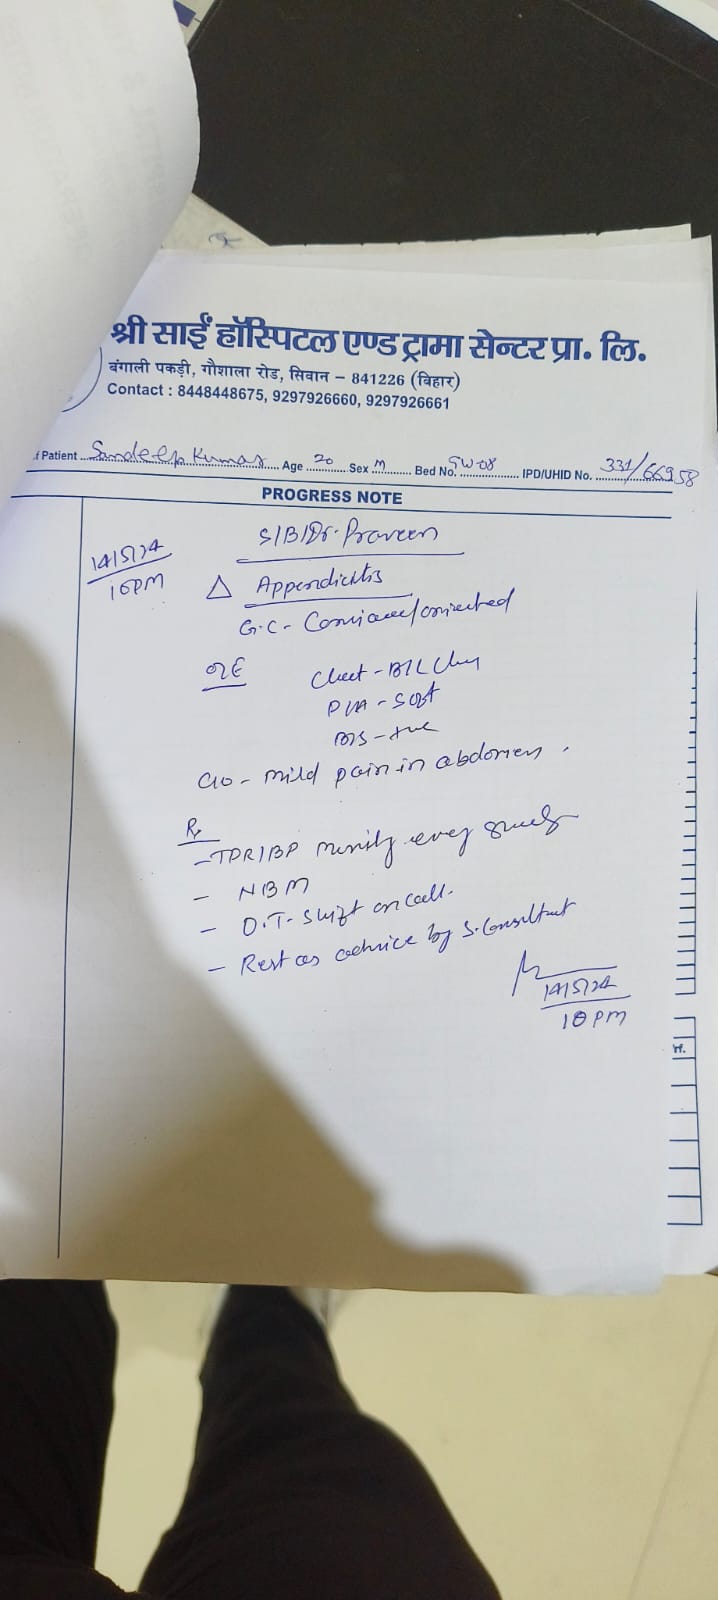 श्री साईं हॉस्पिटल एण्ड ट्रामा सेन्टर प्रा. लि.
बंगाली पकड़ी, गौशाला रोड, सिवान – 841226 (बिहार)
Contact : 8448448675, 9297926660, 9297926661
f Patient Sandeep Kumar Age 20 Sex M Bed No. GW-08 IPD/UHID No. 331/66958
PROGRESS NOTE
14/5/24
10PM
S/B/Dr. Praveen
△ Appendicitis
G.C- /oriented
O/E Chest - B/L
P/A - Soft
B/S - +ve
C/o - mild pain in abdomen.
Rx
- TPR/BP
- NBM
- O.T- Shift on call.
- Rest as advice by S. Consultant
14/5/24
10PM